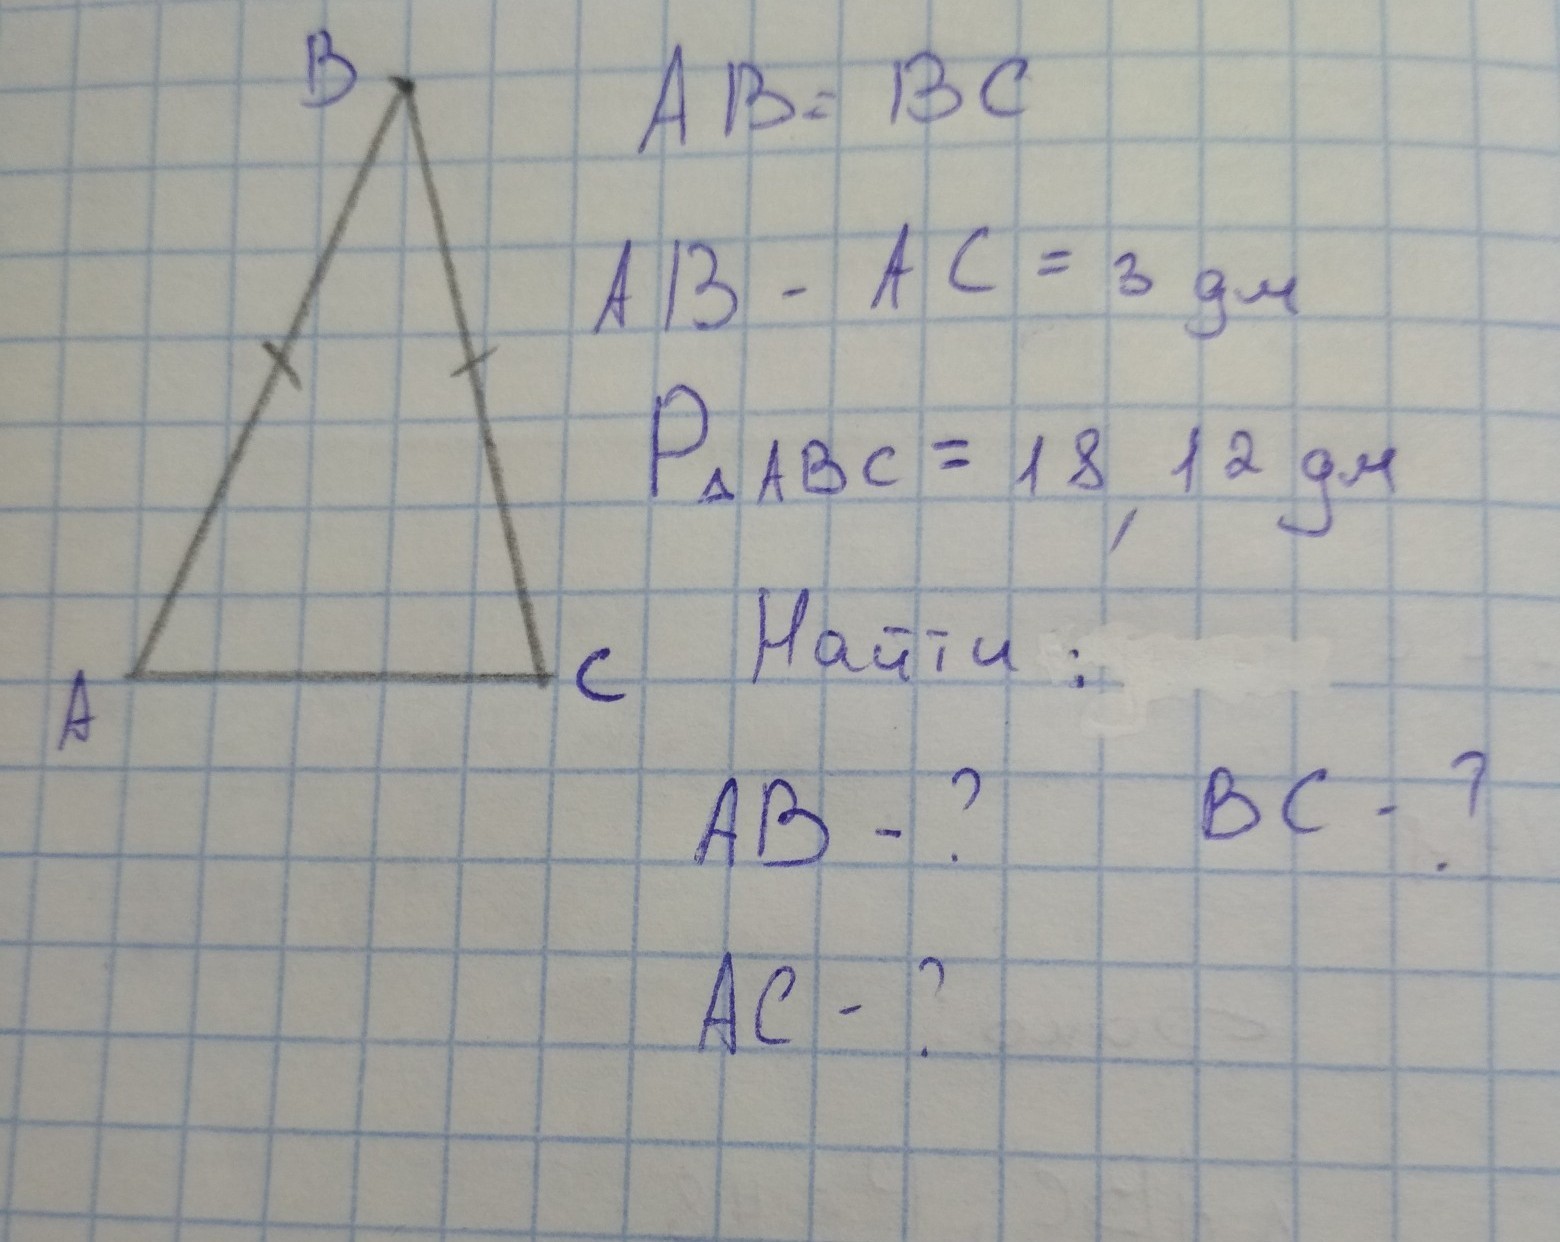 B
AB = BC
AB - AC = 3 дм
P△ABC = 18,12 дм
Найти:
A
C
AB - ?
BC - ?
AC - ?